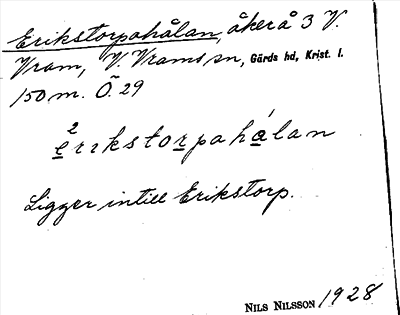 Erikstorpahålan, åker å 3 V.
Vram, V. Vrams sn, Gärds hd, Krist. l.
150 m. Ö. 29
2
erikstorpahálan
Ligger intill Erikstorp.
NILS NILSSON 1928